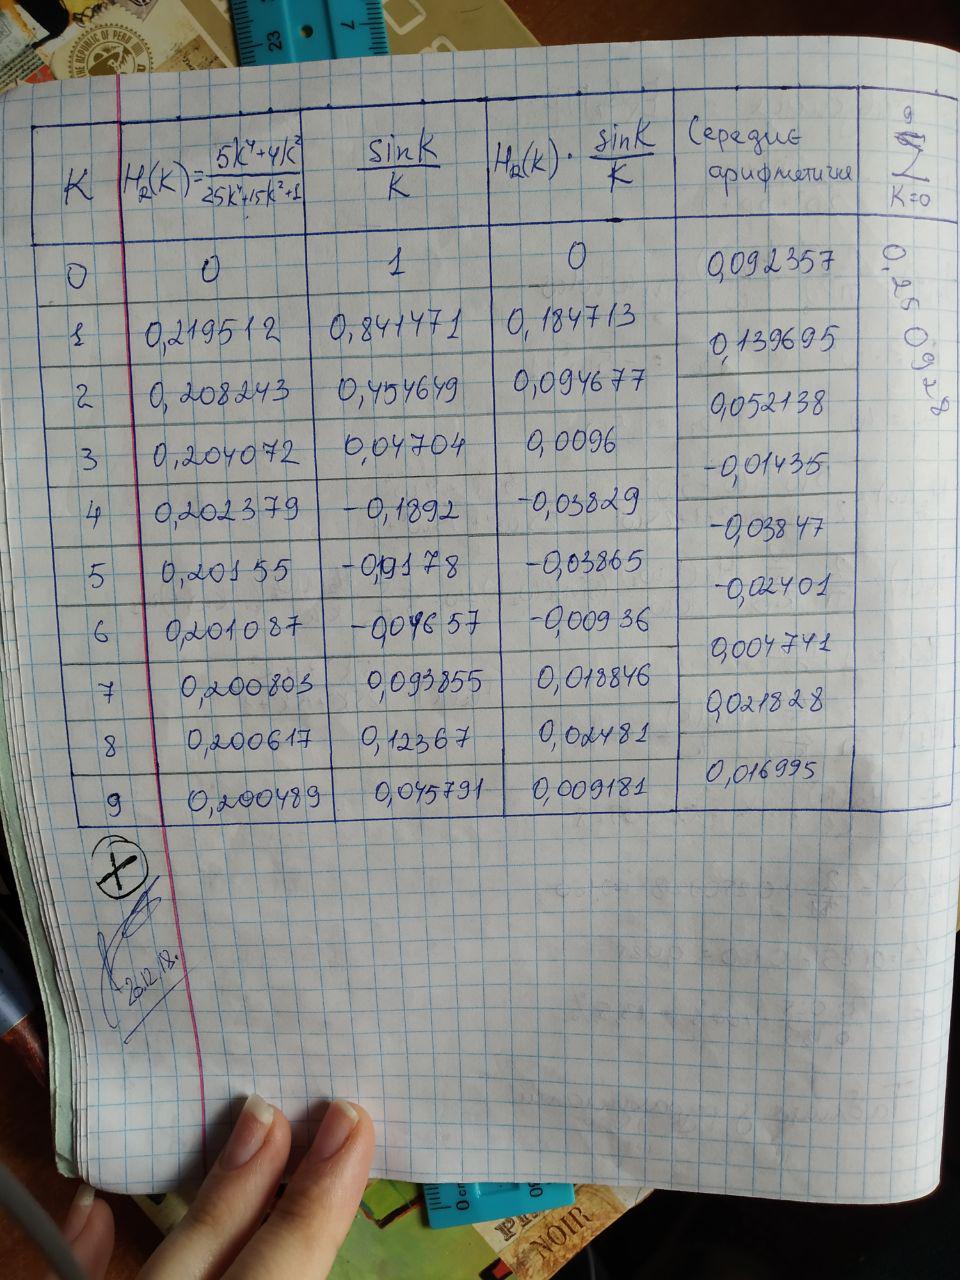 23
7
REPUBLIC OF PERU
K H₂(k)=(5k⁴+4k²)/(25k⁴+15k²+1) sinK/K H₂(k)·sinK/K Середнє арифметичне 9 ∑ K=0
0 0 1 0 0,092357 0,250928
1 0,219512 0,841471 0,184713 0,139695
2 0,208243 0,454649 0,094677 0,052138
3 0,204072 0,04704 0,0096 -0,01435
4 0,202379 -0,1892 -0,03829 -0,03847
5 0,20155 -0,19178 -0,03865 -0,02401
6 0,201087 -0,04657 -0,00936 0,004741
7 0,200803 0,093855 0,018846 0,021828
8 0,200617 0,12367 0,02481 0,016995
9 0,200489 0,045791 0,009181
+
26.12.18.
0 cm
NOIR